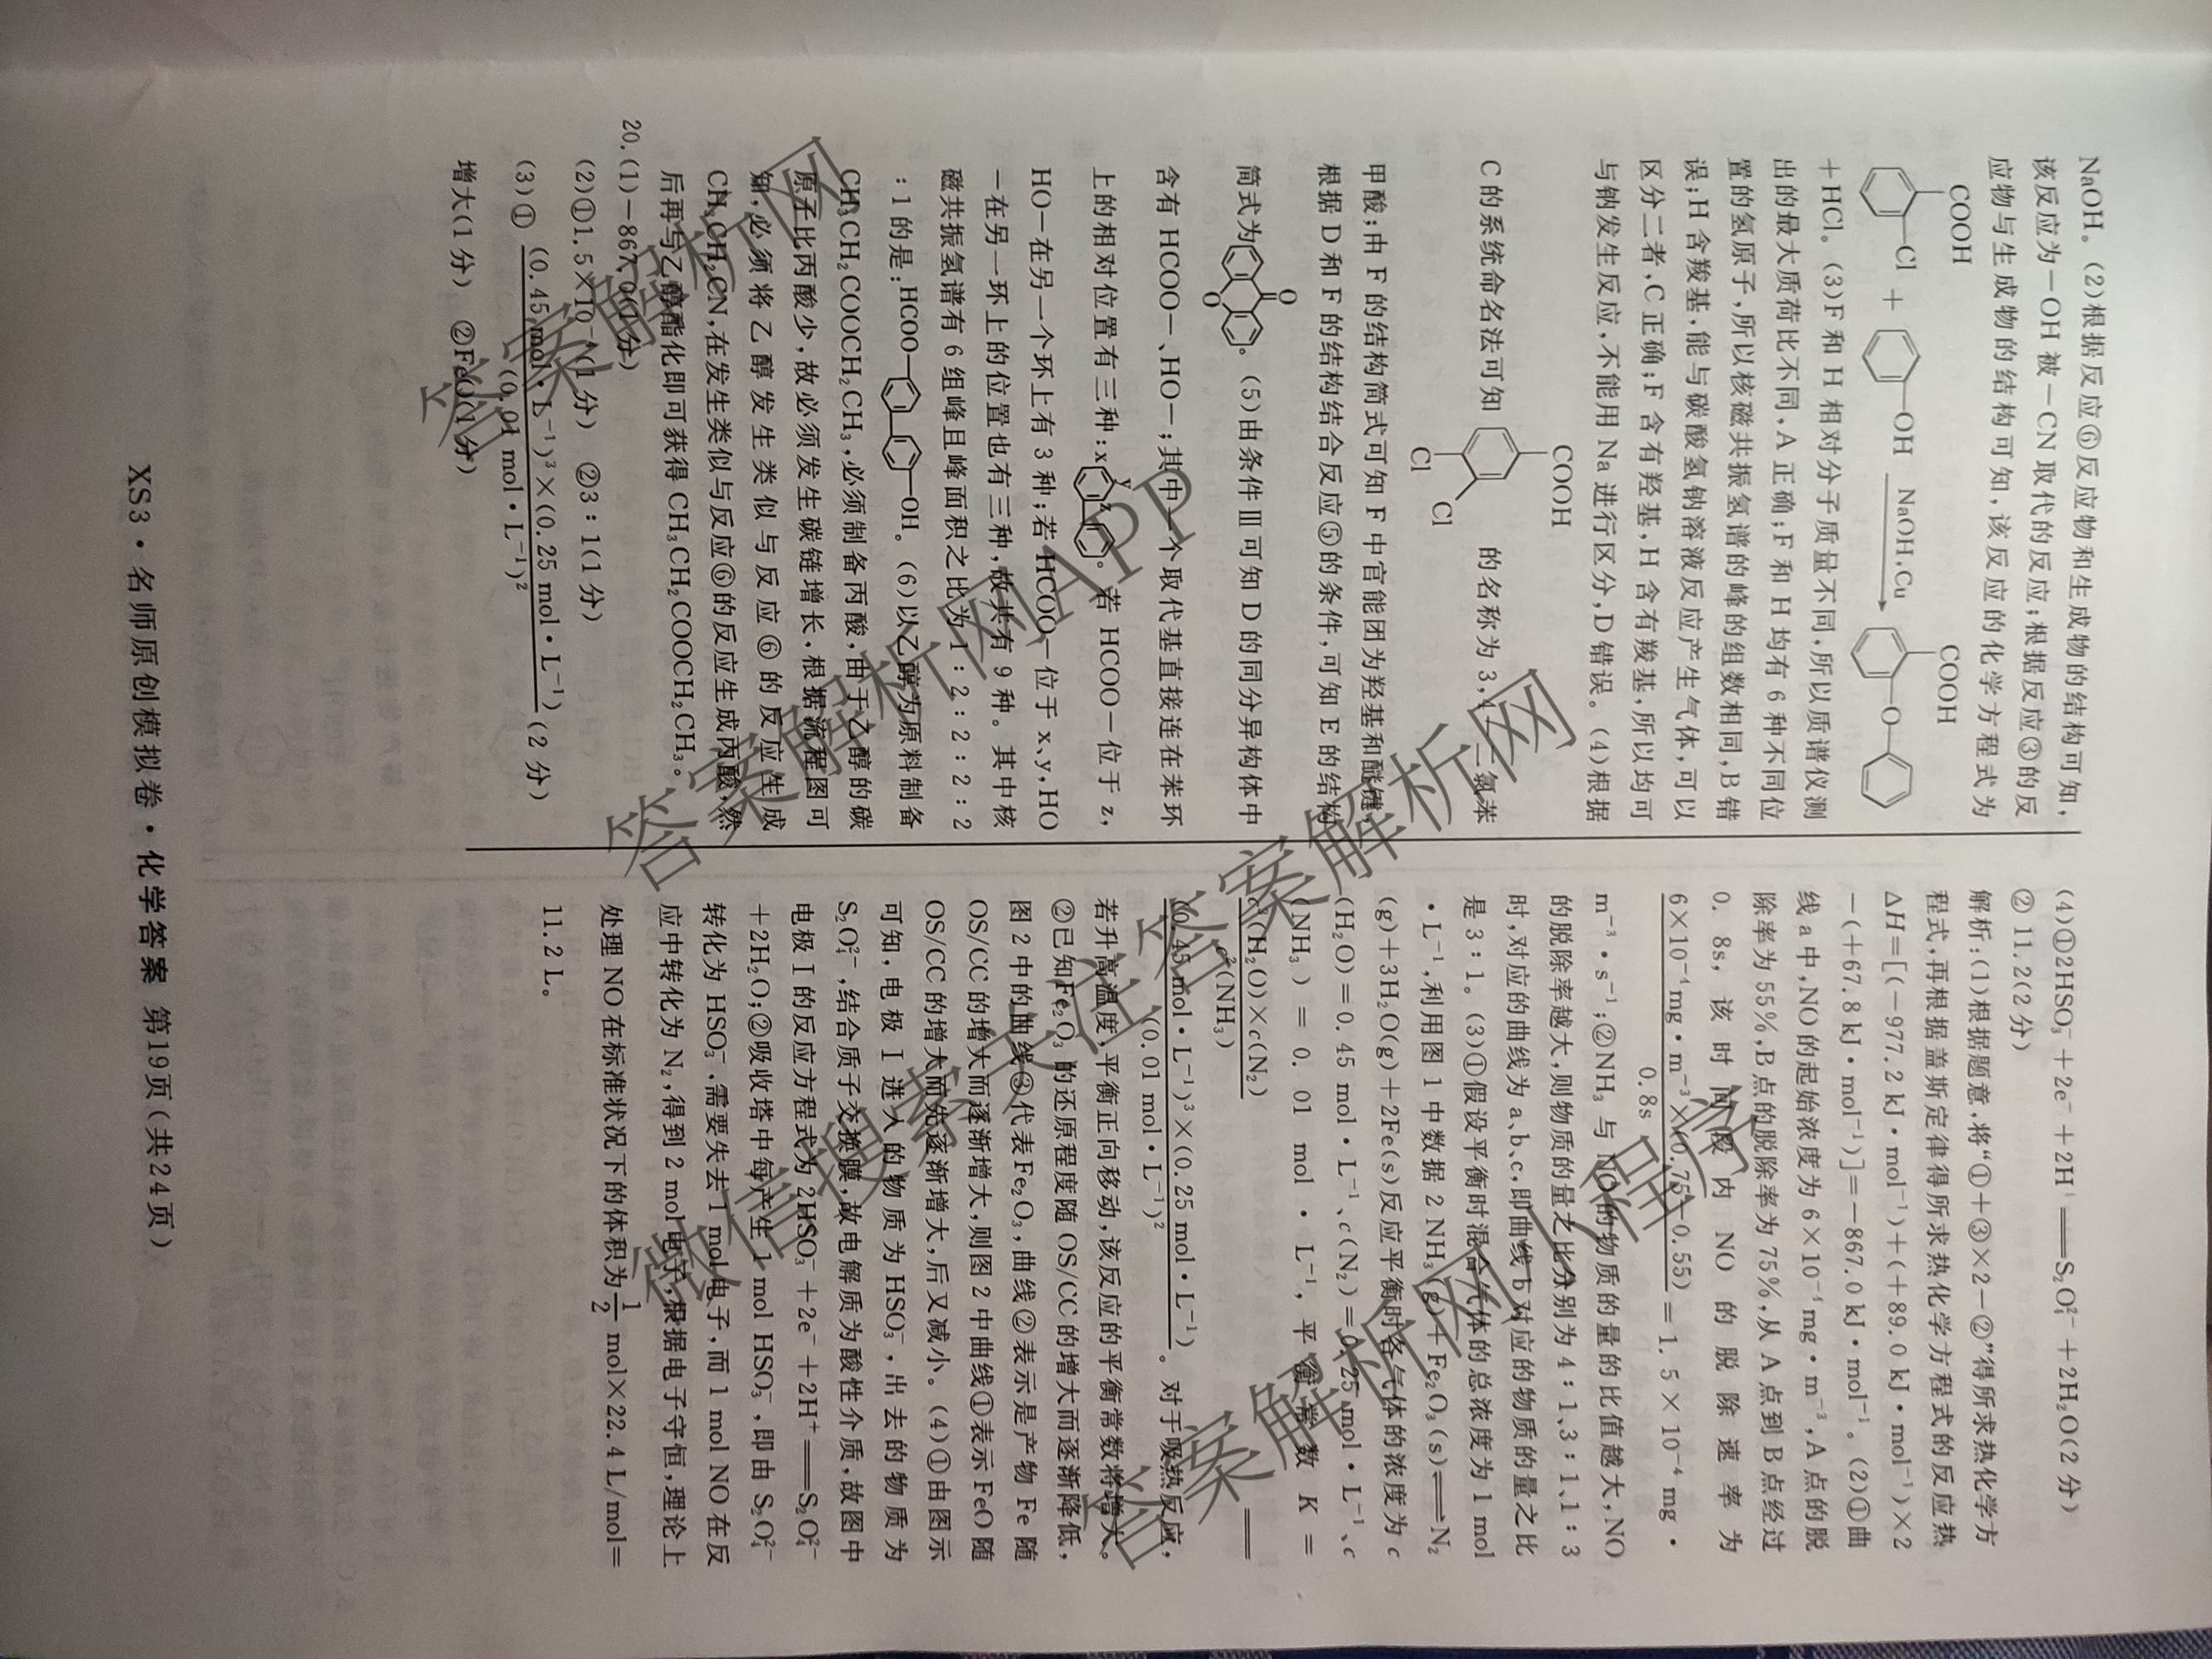 NaOH。(2)根据反应⑥反应物和生成物的结构可知,
该反应为—OH 被—CN 取代的反应;根据反应③的反
应物与生成物的结构可知,该反应的化学方程式为
COOH Cl + OH NaOH,Cu COOH O
+HCl。(3)F 和 H 相对分子质量不同,所以质谱仪测
出的最大质荷比不同,A 正确;F 和 H 均有 6 种不同位
置的氢原子,所以核磁共振氢谱的峰的组数相同,B 错
误;H 含羧基,能与碳酸氢钠溶液反应产生气体,可以
区分二者,C 正确;F 含有羟基,H 含有羧基,所以均可
与钠发生反应,不能用 Na 进行区分,D 错误。(4)根据
COOH
C 的系统命名法可知 的名称为 3,4-二氯苯
Cl Cl
甲酸;由 F 的结构简式可知 F 中官能团为羟基和醚键,
根据 D 和 F 的结构结合反应⑤的条件,可知 E 的结构
O
简式为 。(5)由条件Ⅲ可知 D 的同分异构体中
O
含有 HCOO—、HO—;其中一个取代基直接连在苯环
上的相对位置有三种:x y z 。若 HCOO—位于 z,
HO—在另一个环上有 3 种;若 HCOO—位于 x、y,HO
—在另一环上的位置也有三种,故共有 9 种。其中核
磁共振氢谱有 6 组峰且峰面积之比为 1:2:2:2:2
:1 的是:HCOO— —OH。(6)以乙醇为原料制备
CH₃CH₂COOCH₂CH₃,必须制备丙酸,由于乙醇的碳
原子比丙酸少,故必须发生碳链增长,根据流程图可
知,必须将乙醇发生类似与反应⑥的反应生成
CH₃CH₂CN,在发生类似与反应⑥的反应生成丙酸,然
后再与乙醇酯化即可获得 CH₃CH₂COOCH₂CH₃。
20.(1)—867.0(1 分)
(2)①1.5×10⁻⁴(1 分) ②3:1(1 分)
(3)① (0.45 mol·L⁻¹)³×(0.25 mol·L⁻¹) (2 分)
(0.01 mol·L⁻¹)²
增大(1 分) ②FeO(1 分)
(4)①2HSO₃⁻+2e⁻+2H⁺══S₂O₄²⁻+2H₂O(2 分)
②11.2(2 分)
解析:(1)根据题意,将“①+③×2-②”得所求热化学方
程式,再根据盖斯定律得所求热化学方程式的反应热
ΔH=[(-977.2 kJ·mol⁻¹)+(+89.0 kJ·mol⁻¹)×2
-(+67.8 kJ·mol⁻¹)]=-867.0 kJ·mol⁻¹。(2)①曲
线 a 中,NO 的起始浓度为 6×10⁻⁴ mg·m⁻³,A 点的脱
除率为 55%,B 点的脱除率为 75%,从 A 点到 B 点经过
0.8s,该时间段内 NO 的脱除速率为
6×10⁻⁴mg·m⁻³×(0.75-0.55)
0.8s
=1.5×10⁻⁴ mg·
m⁻³·s⁻¹;②NH₃ 与 NO 的物质的量的比值越大,NO
的脱除率越大,则物质的量之比分别为 4:1、3:1、1:3
时,对应的曲线为 a、b、c,即曲线 b 对应的物质的量之比
是 3:1。(3)①假设平衡时混合气体的总浓度为 1 mol
·L⁻¹,利用图 1 中数据 2 NH₃(g)+Fe₂O₃(s)⇌N₂
(g)+3H₂O(g)+2Fe(s)反应平衡时各气体的浓度为 c
(H₂O)=0.45 mol·L⁻¹、c(N₂)=0.25 mol·L⁻¹、c
(NH₃)=0.01 mol·L⁻¹,平衡常数 K =
c³(H₂O)×c(N₂)
c²(NH₃)
=
(0.45 mol·L⁻¹)³×(0.25 mol·L⁻¹)
(0.01 mol·L⁻¹)²
。对于吸热反应,
若升高温度,平衡正向移动,该反应的平衡常数将增大。
②已知 Fe₂O₃ 的还原程度随 OS/CC 的增大而逐渐降低,
图 2 中的曲线③代表 Fe₂O₃,曲线②表示是产物 Fe 随
OS/CC 的增大而逐渐增大,则图 2 中曲线①表示 FeO 随
OS/CC 的增大而先逐渐增大,后又减小。(4)①由图示
可知,电极 I 进入的物质为 HSO₃⁻,出去的物质为
S₂O₄²⁻,结合质子交换膜,故电解质为酸性介质,故图中
电极 I 的反应方程式为 2HSO₃⁻+2e⁻+2H⁺══S₂O₄²⁻
+2H₂O;②吸收塔中每产生 1 mol HSO₃⁻,即由 S₂O₄²⁻
转化为 HSO₃⁻,需要失去 1 mol 电子,而 1 mol NO 在反
应中转化为 N₂,得到 2 mol 电子,根据电子守恒,理论上
处理 NO 在标准状况下的体积为 1/2 mol×22.4 L/mol=
11.2 L。
XS3·名师原创模拟卷·化学答案 第19页(共24页)
答案解析网
答案解析网APP
答案解析网
微信搜索关注答案解析网
答案解析网小程序